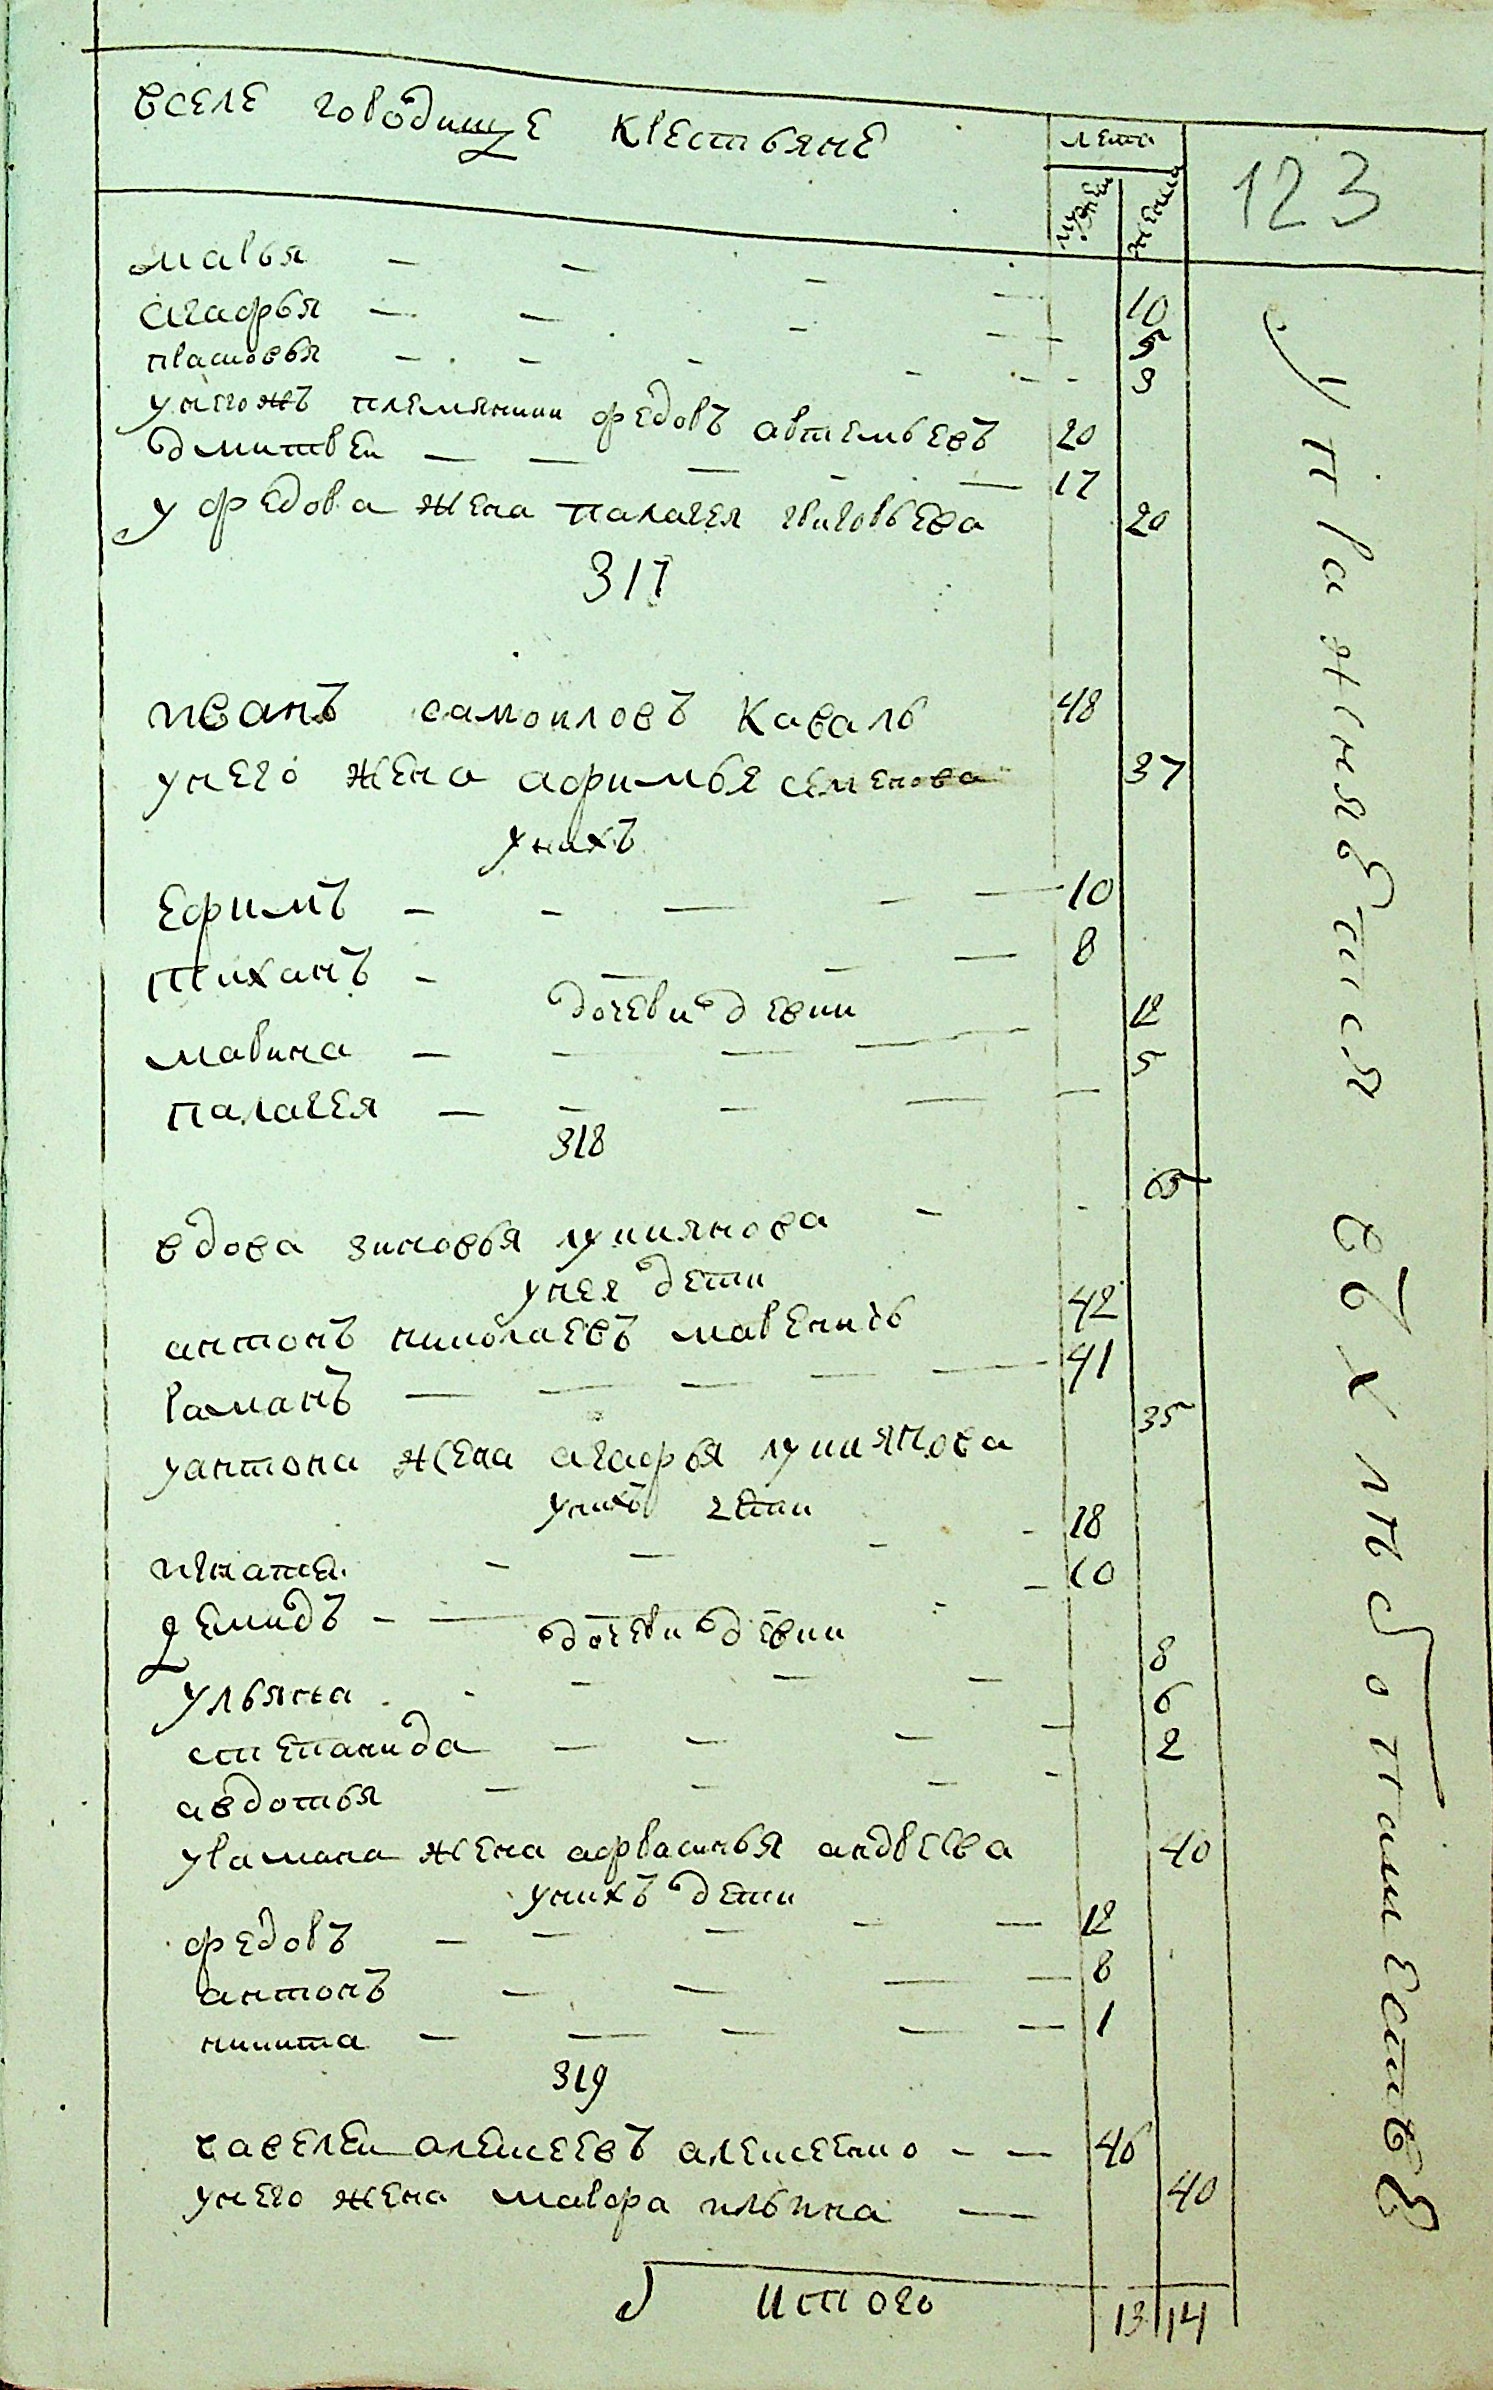 вселе городище крестьяне
лета
мужей
женска
123
марья — — — — 10
агафья — — — — 5
прасковья — — — — 3
унегожъ племянники федоръ артемьевъ 20
дмитреи — — — — 17
у федора жена палагея григорьева 20
317
иванъ самоиловъ Коваль 48
унего жена афимья семенова 37
унихъ
Ефимъ — — — — 10
тиханъ — — — — 8
дочери девки
марина — — — — 12
палагея — — — — 5
318
вдова зиновья лукиянова — 65
унея дети
антонъ николаевъ мареничь 42
раманъ — — — — 41
уантона жена агафья лукиянова 35
унихъ дети
игнатеи — — — 18
демидъ — — — 10
дочери девки
ульяна — — — 8
степанида — — — 6
авдотья — — — 2
урамана жена афрасинья андреева 40
унихъ дети
федоръ — — — — 12
антонъ — — — — 8
никита — — — — 1
319
савелеи алексеевъ алексеенко — — 46
унего жена мавра ильина — 40
итого 13 14
упражняется вхлебопашестве